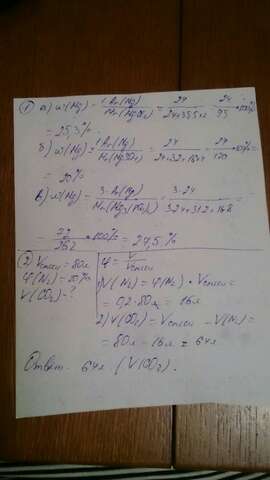 ① а) w(Mg) = 1·Ar(Mg)/Mr(MgCl₂) = 24/24+35,5×2 = 24/95 · 100%
= 25,3%.
б) w(Mg) = 1·Ar(Mg)/Mr(MgSO₄) = 24/24+32+16·4 = 24/120 · 100% =
= 20%
в) w(Mg) = 3·Ar(Mg)/Mr(Mg₃(PO₄)₂) = 3·24/3·24+31·2+16·8 =
= 72/262 · 100% = 27,5%
② Vсмеси = 80л
φ(N₂) = 20%
V(CO₂) - ?
φ = V/Vсмеси
1) V(N₂) = φ(N₂) · Vсмеси =
= 0,2 · 80л = 16л
2) V(CO₂) = Vсмеси - V(N₂) =
= 80л - 16л = 64л
Ответ: 64л (V(CO₂).